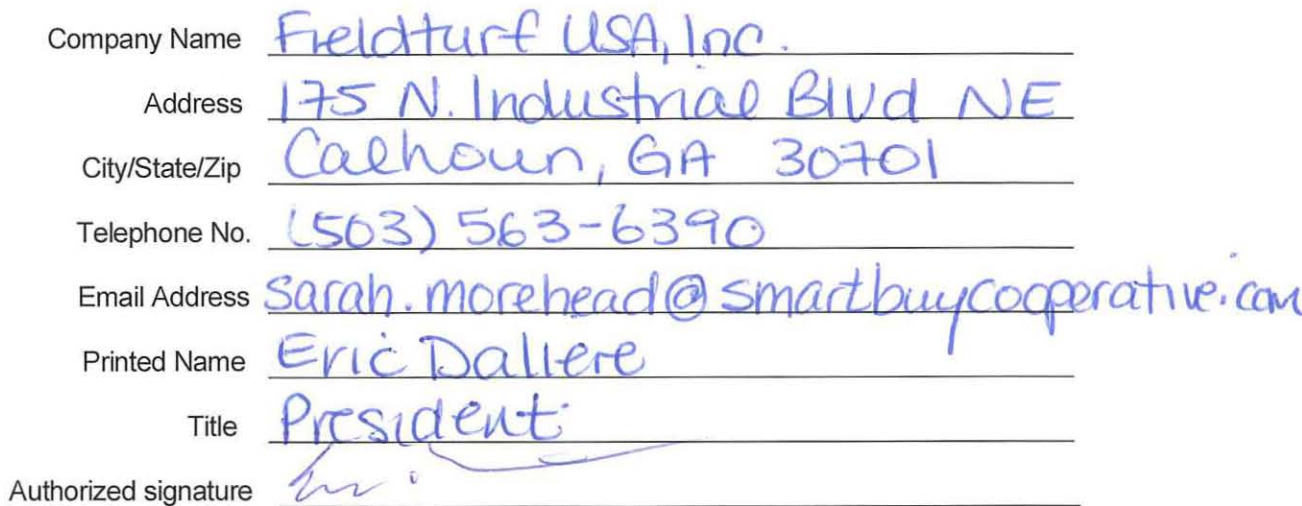 Company Name Fieldturf USA, Inc.
Address 175 N. Industrial Blvd NE
City/State/Zip Calhoun, GA 30701
Telephone No. (503) 563-6390
Email Address sarah.morehead@smartbuycooperative.com
Printed Name Eric Daliere
Title President
Authorized signature